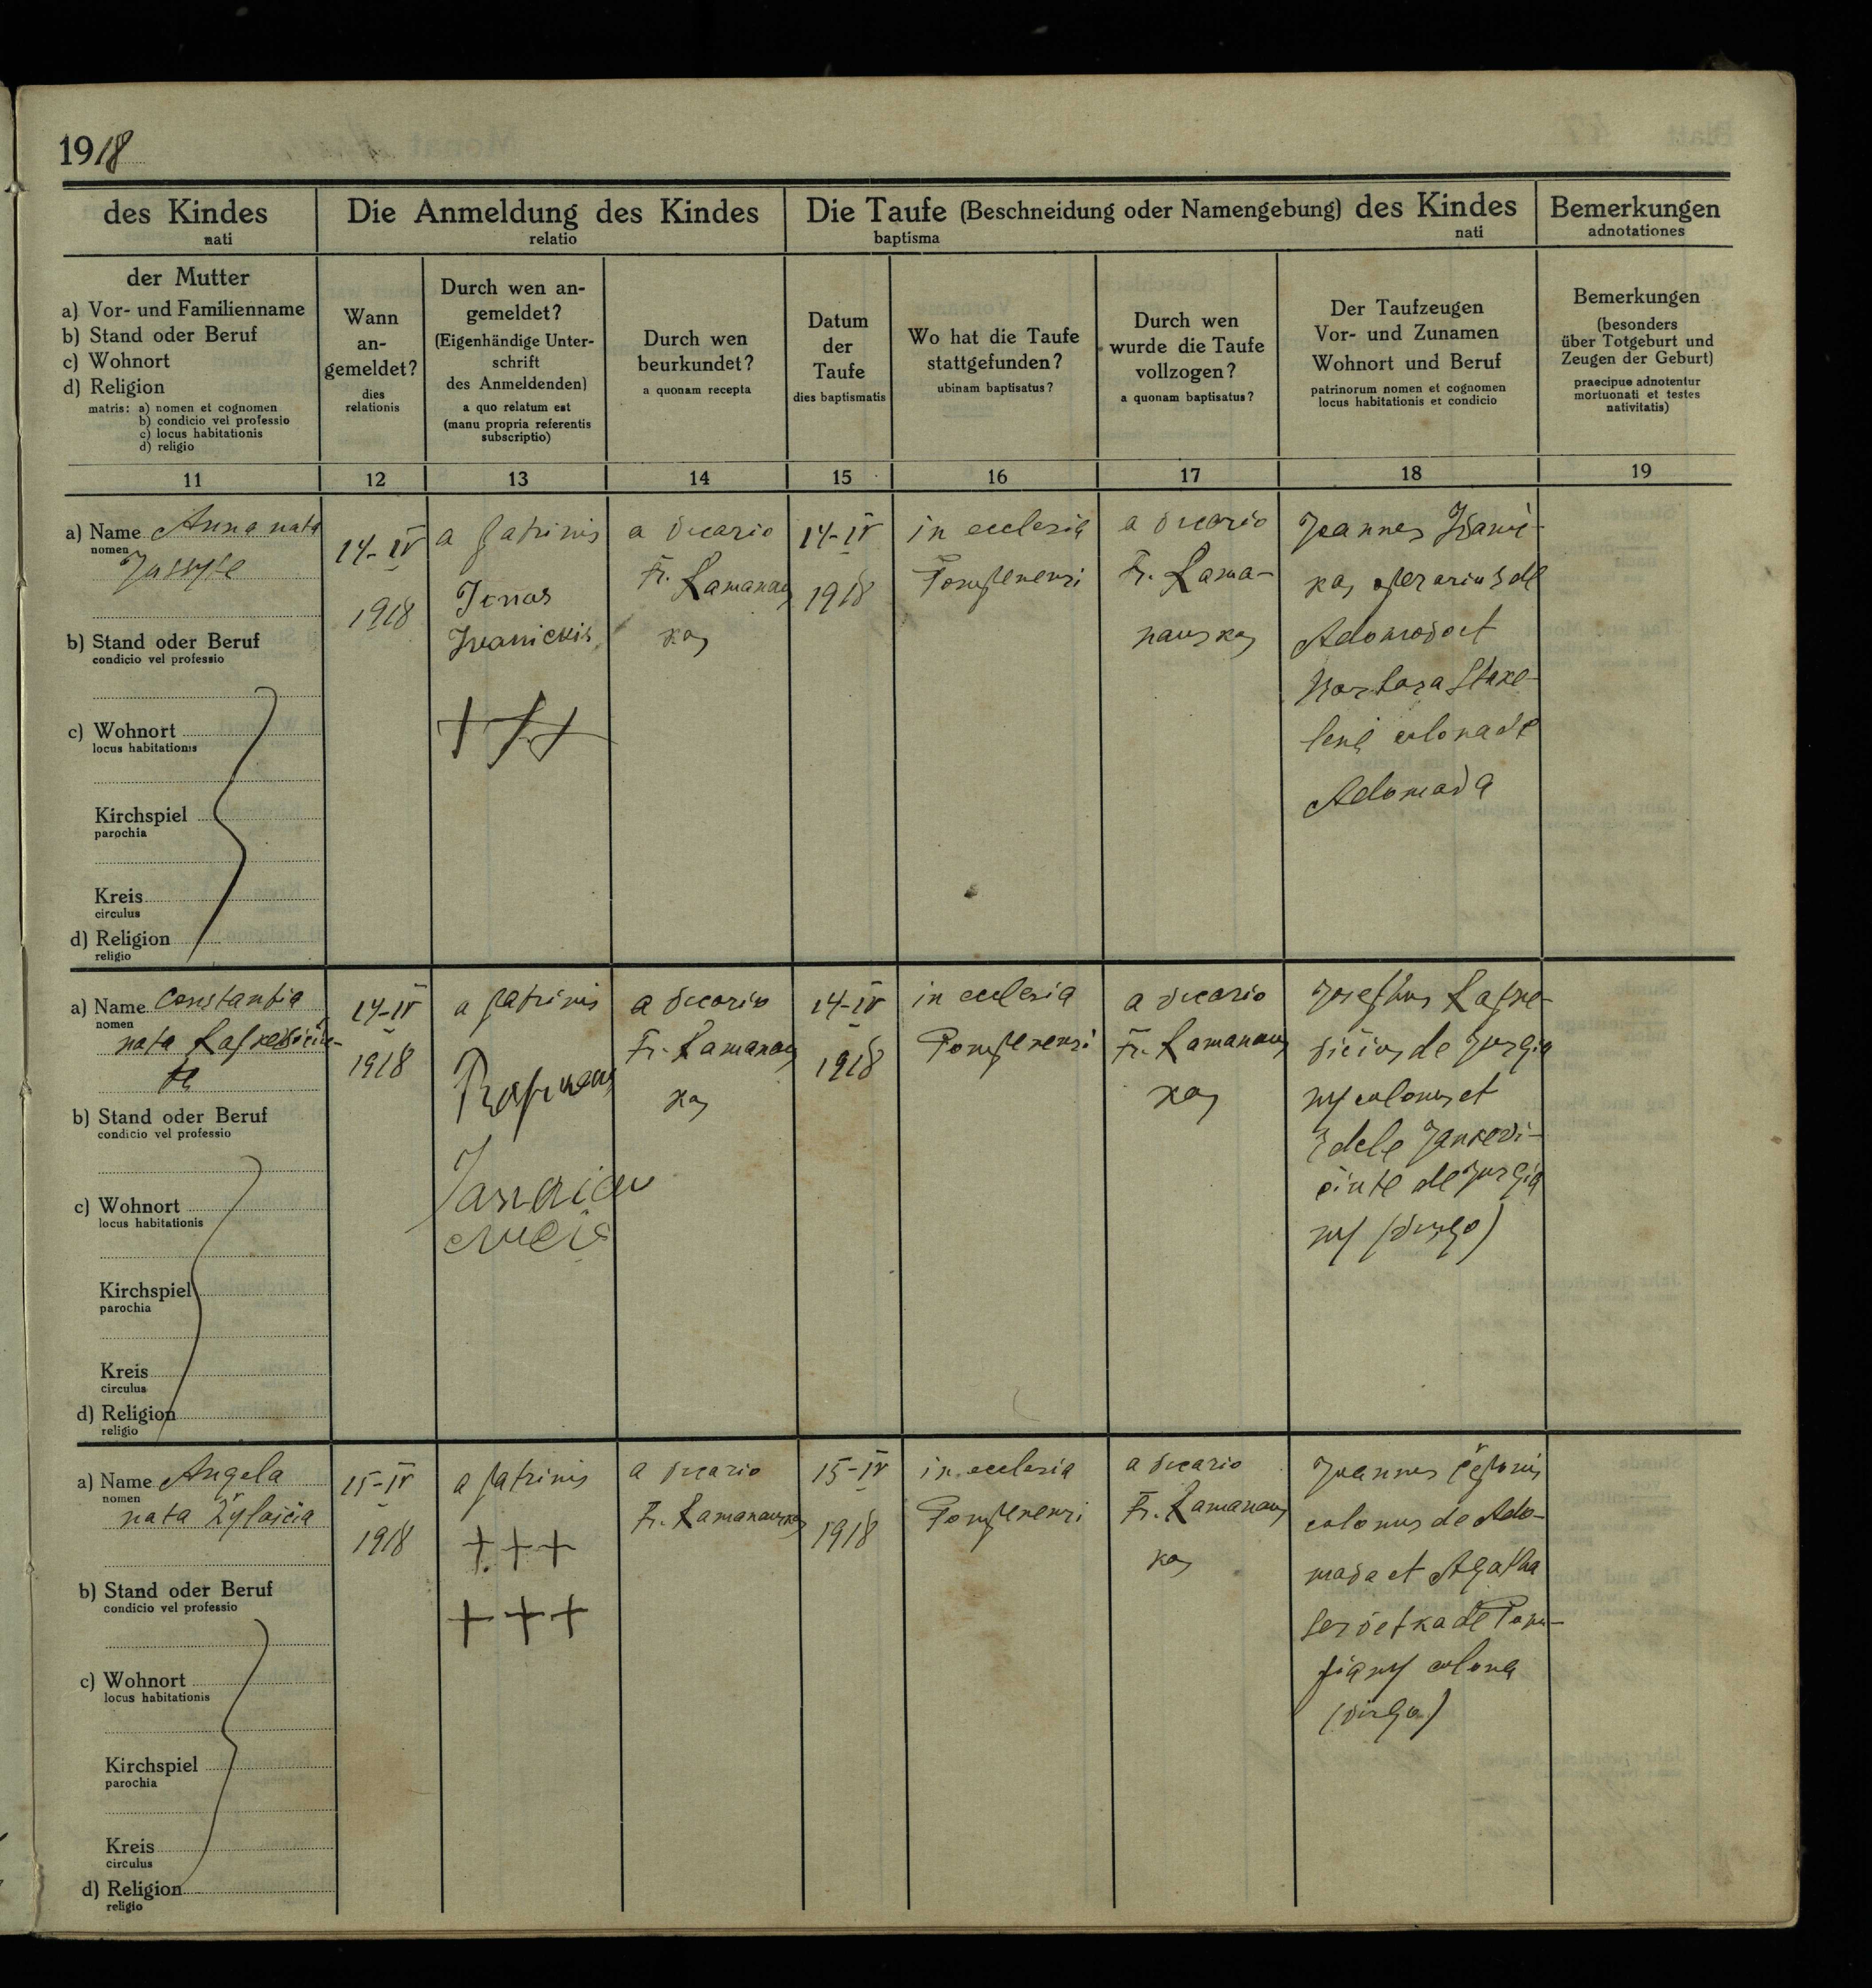 1918
des Kindes
nati
Die Anmeldung des Kindes
relatio
Die Taufe (Beschneidung oder Namengebung) des Kindes
baptisma nati
Bemerkungen
adnotationes
der Mutter
a) Vor- und Familienname
b) Stand oder Beruf
c) Wohnort
d) Religion
matris: a) nomen et cognomen
b) condicio vel professio
c) locus habitationis
d) religio
Wann
an-
gemeldet?
dies
relationis
Durch wen an-
gemeldet?
(Eigenhändige Unter-
schrift
des Anmeldenden)
a quo relatum est
(manu propria referentis
subscriptio)
Durch wen
beurkundet?
a quonam recepta
Datum
der
Taufe
dies baptismatis
Wo hat die Taufe
stattgefunden?
ubinam baptisatus?
Durch wen
wurde die Taufe
vollzogen?
a quonam baptisatus?
Der Taufzeugen
Vor- und Zunamen
Wohnort und Beruf
patrinorum nomen et cognomen
locus habitationis et condicio
Bemerkungen
(besonders
über Totgeburt und
Zeugen der Geburt)
praecipue adnotentur
mortuonati et testes
nativitatis)
11 12 13 14 15 16 17 18 19
a) Name Anna nata
nomen
b) Stand oder Beruf
condicio vel professio
c) Wohnort
locus habitationis
Kirchspiel
parochia
Kreis
circulus
d) Religion
religio
14-IV
1918
a patrinis
Jonas
Ivanickis
+++
a vicario
Fr. Ramanaus
kas
14-IV
1918
in ecclesia
Pompenensi
a vicario
Fr. Rama-
nauskas
Joannes Ivanic-
kas operarius de
Adomava et
Barbara Stake-
lenė colona de
Adomava
a) Name Constantia
nomen
nata
te
b) Stand oder Beruf
condicio vel professio
c) Wohnort
locus habitationis
Kirchspiel
parochia
Kreis
circulus
d) Religion
religio
14-IV
1918
a patrinis
a vicario
Fr. Ramanaus
kas
14-IV
1918
in ecclesia
Pompenensi
a vicario
Fr. Ramanaus
kas
Josephus
de Jurgia
ny colonus et
Edele Jankevi-
čiute de Jurgia
ny (virgo)
a) Name Angela
nomen
nata
b) Stand oder Beruf
condicio vel professio
c) Wohnort
locus habitationis
Kirchspiel
parochia
Kreis
circulus
d) Religion
religio
15-IV
1918
a patrinis
+++
+++
a vicario
Fr. Ramanauskas
15-IV
1918
in ecclesia
Pompenensi
a vicario
Fr. Ramanaus
kas
Joannes
colonus de Ado-
mava et Agatha
colona
(virgo)